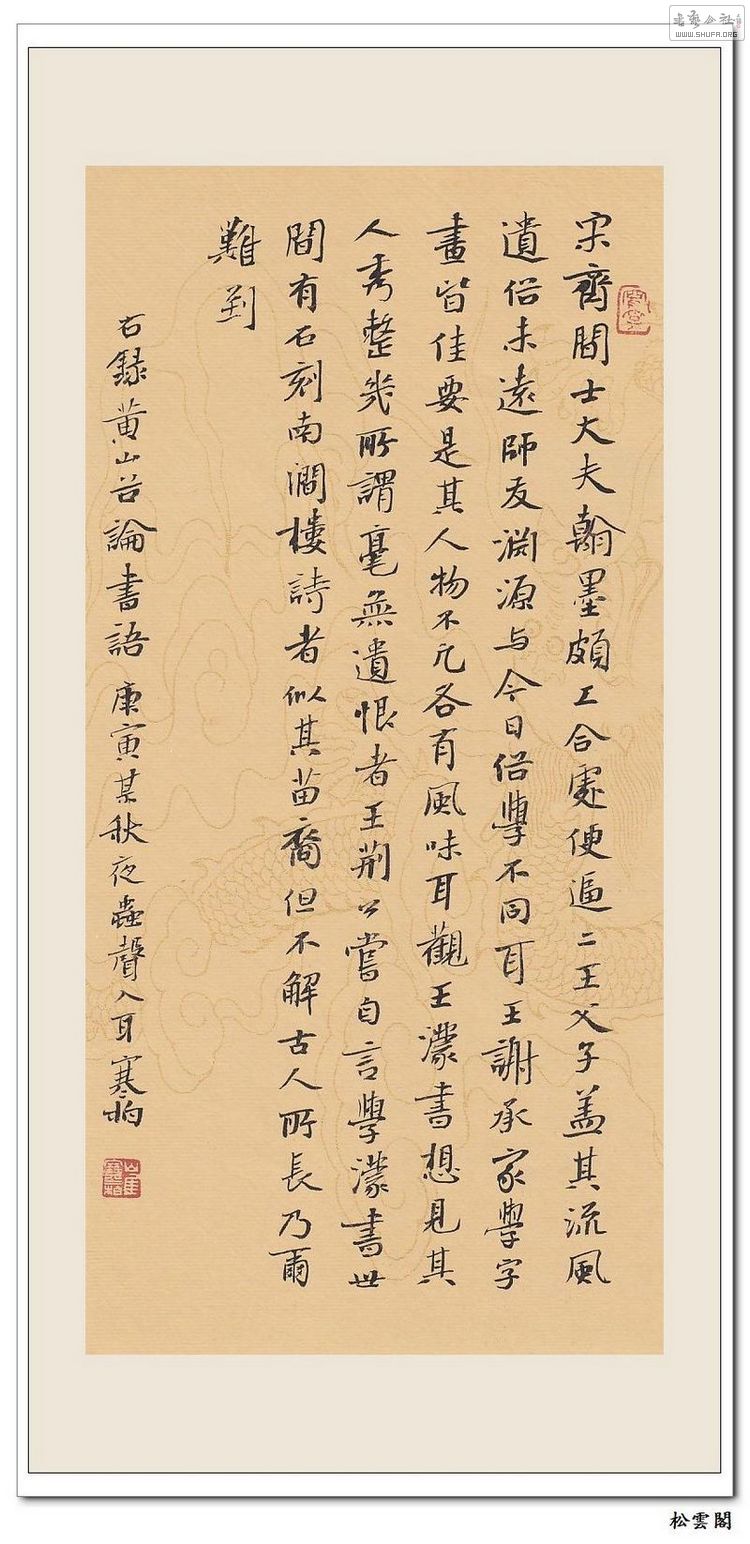 宋齊間士大夫翰墨頗工合處便逼二王父子蓋其流風
遺俗未遠師友淵源与今日俗學不同耳王謝承家學字
畫皆佳要是其人物不凡各有風味耳觀王濛書想見其
人秀整幾所謂毫無遺恨者王荊公嘗自言學濛書世
間有石刻南澗樓詩者似其苗裔但不解古人所長乃爾
難到
右錄黃山谷論書語 庚寅某秋夜蟲聲入耳寒柏
松雲閣
WWW.SHUFA.ORG